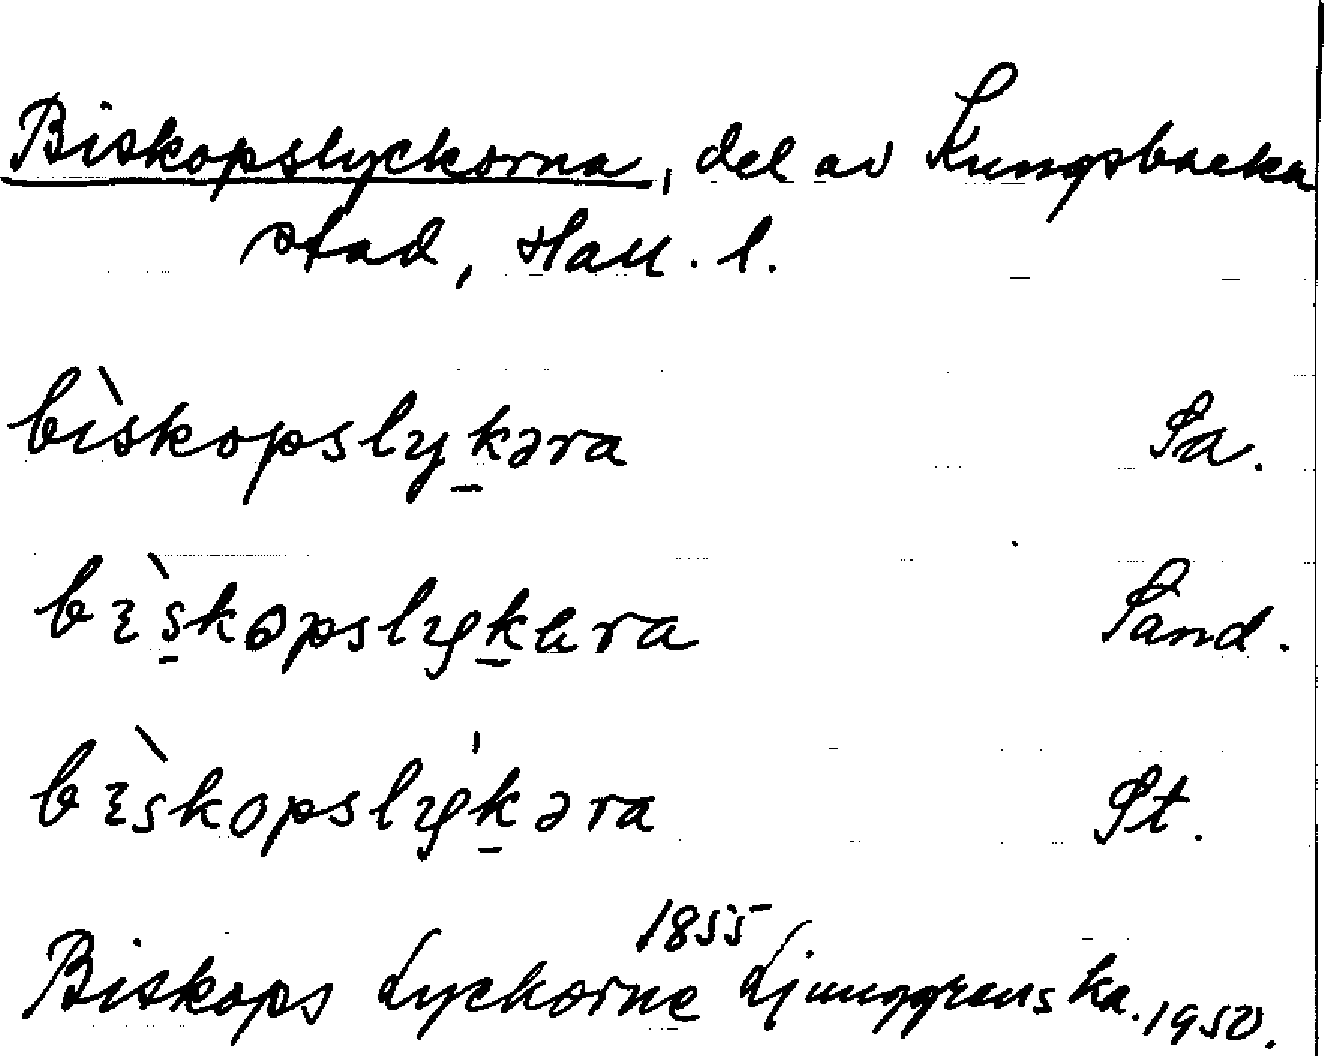 Biskopslyckorna, del av Kungsbacka
stad, Hall. l.
bìskopslykəra Sa.
bìskopslykara Sand.
bìskopslýkəra St.
1855
Biskops Lyckorne Ljunggrens ka. 1950.